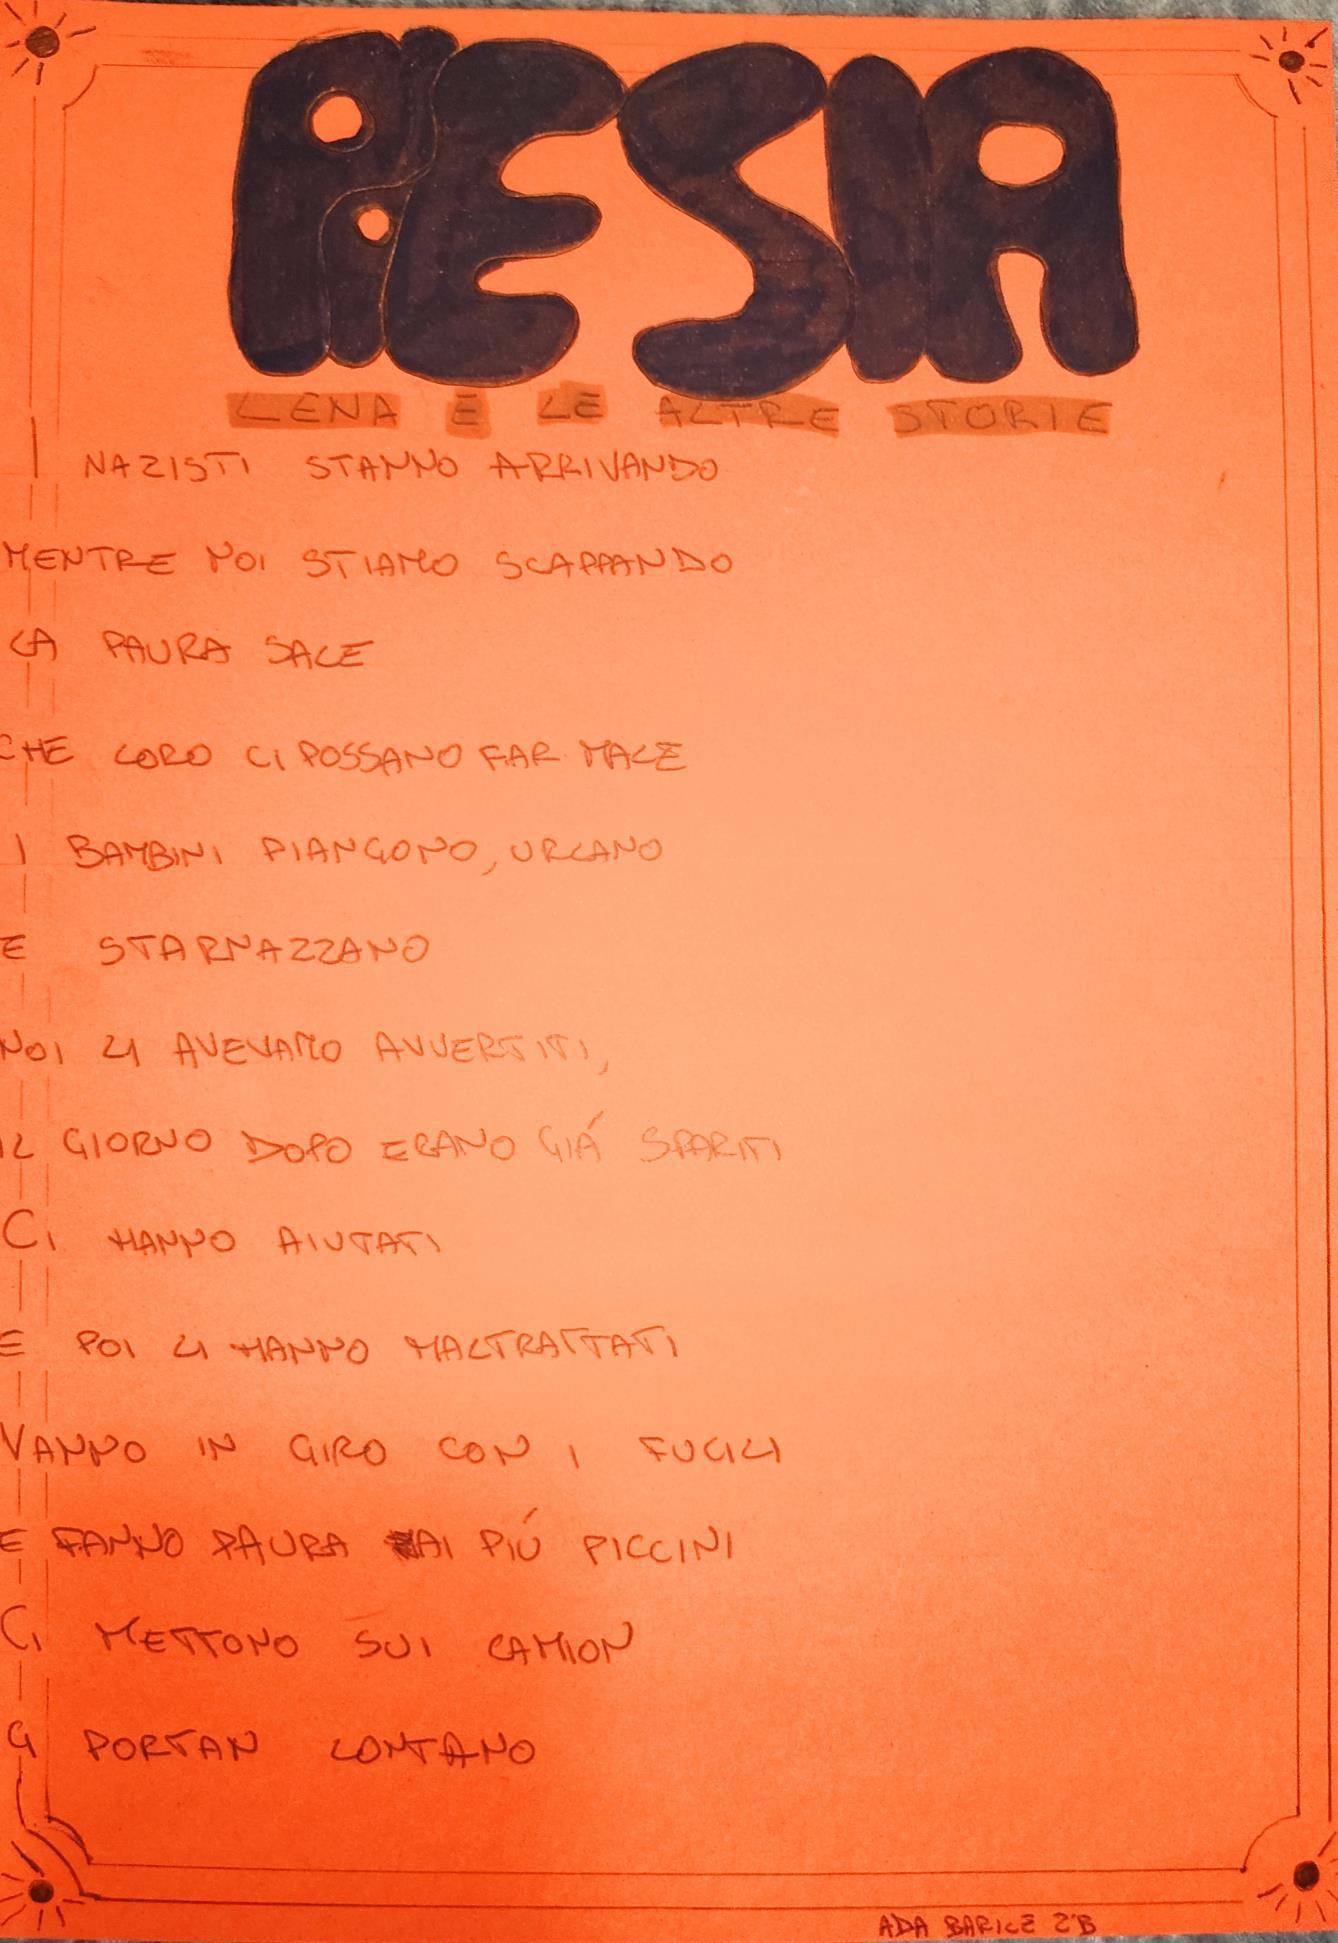 POESIA
LENA E LE ALTRE STORIE
I NAZISTI STANNO ARRIVANDO
MENTRE NOI STIAMO SCAPPANDO
LA PAURA SALE
CHE LORO CI POSSANO FAR MALE
I BAMBINI PIANGONO, URLANO
E STARNAZZANO
NOI LI AVEVAMO AVVERTITI,
IL GIORNO DOPO ERANO GIÁ SPARITI
CI HANNO AIUTATI
E POI LI HANNO MALTRATTATI
VANNO IN GIRO CON I FUCILI
E FANNO PAURA AI PIÚ PICCINI
CI METTONO SUI CAMION
CI PORTAN LONTANO
ADA BARICE 2ªB